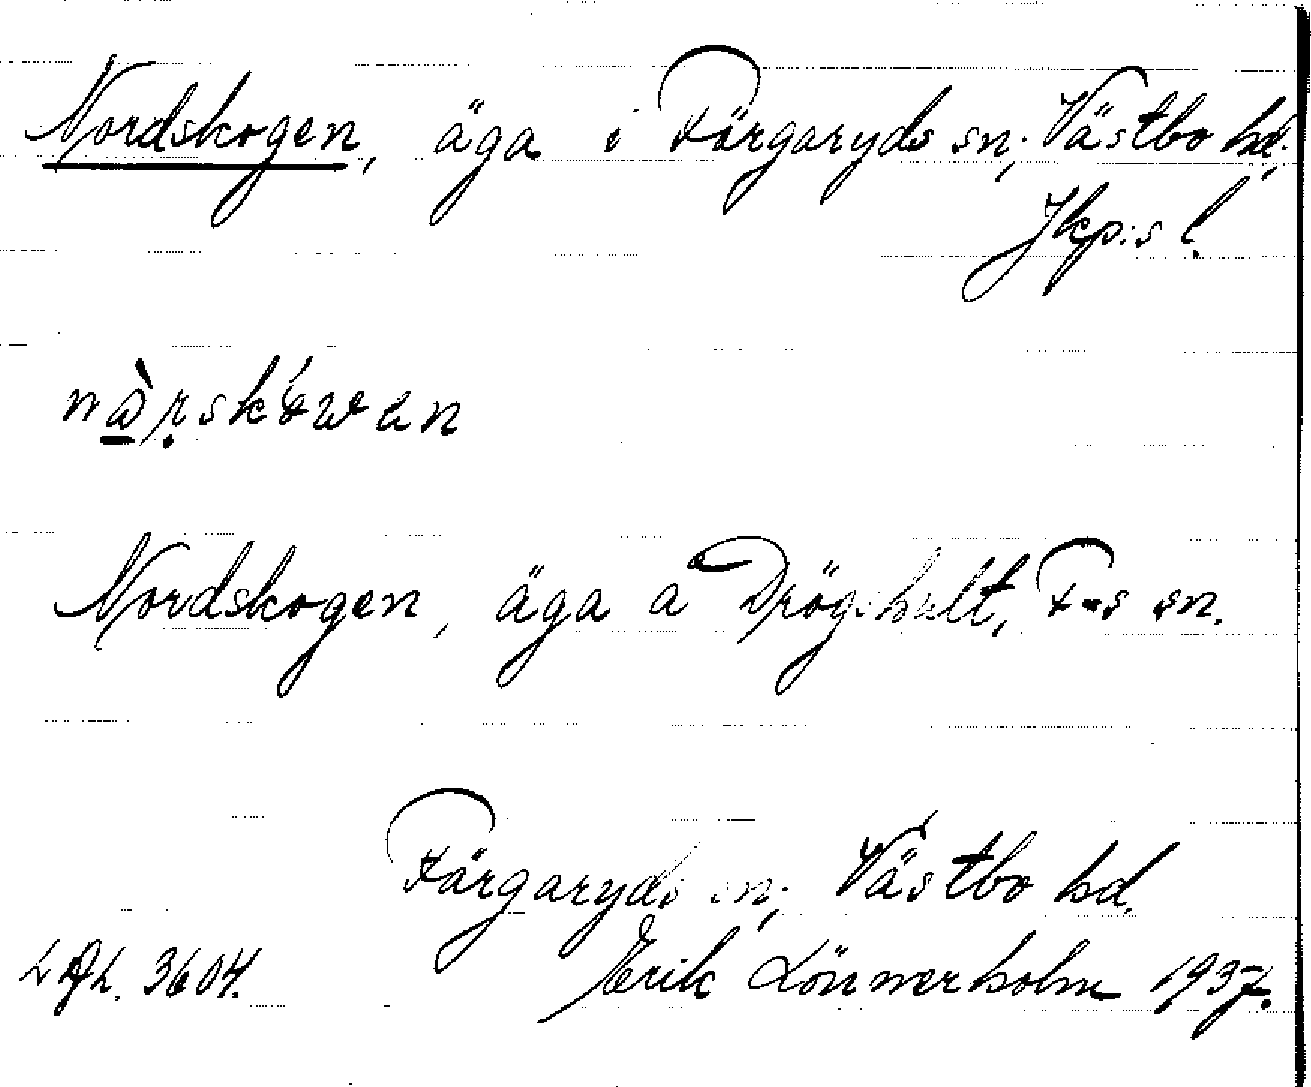 Nordskogen, äga i Färgaryds sn, Västbo hd,
Jkp:s l.
Nordskogen, äga å Drögshult, F-s sn.
Färgaryds sn, Västbo hd.
Erik Lönnerholm 1937.
3604.